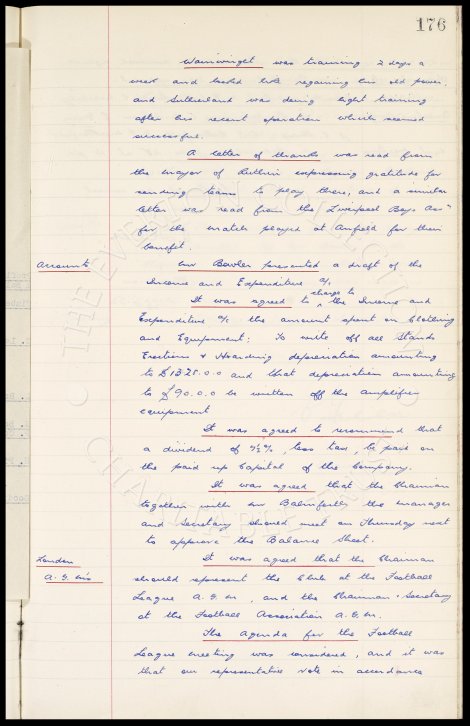 176
Wainwright was training 2 days a
week and looked like regaining his old power,
and Sutherland was doing light training
after his recent operation which seemed
successful.
A letter of thanks was read from
the mayor of Ruthin expressing gratitude for
sending teams to play there, and a similar
letter was read from the Liverpool Boys Assn
for the match played at Anfield for their
benefit.
Accounts
Mr Bawler presented a draft of the
Income and Expenditure a/c
It was agreed to charge to the Income and
Expenditure a/c the amount spent on Clothing
and Equipment: To write off all Stands
Erections & Hoarding depreciation amounting
to £1325.0.0 and that depreciation amounting
to £90.0.0 be written off the amplifier
equipment
It was agreed to recommend that
a dividend of 7½%, less tax, be paid on
the paid up Capital of the Company.
It was agreed that the Chairman
together with Mr Balmforth the manager
and Secretary should meet on Thursday next
to approve the Balance Sheet.
London
A.G.M's
It was agreed that the Chairman
should represent the Club at the Football
League A.G.M., and the Chairman & Secretary
at the Football Association A.G.M.
The Agenda for the Football
League meeting was considered, and it was
that our representative vote in accordance
THE EVERTON COLLECTION
CHARITABLE TRUST